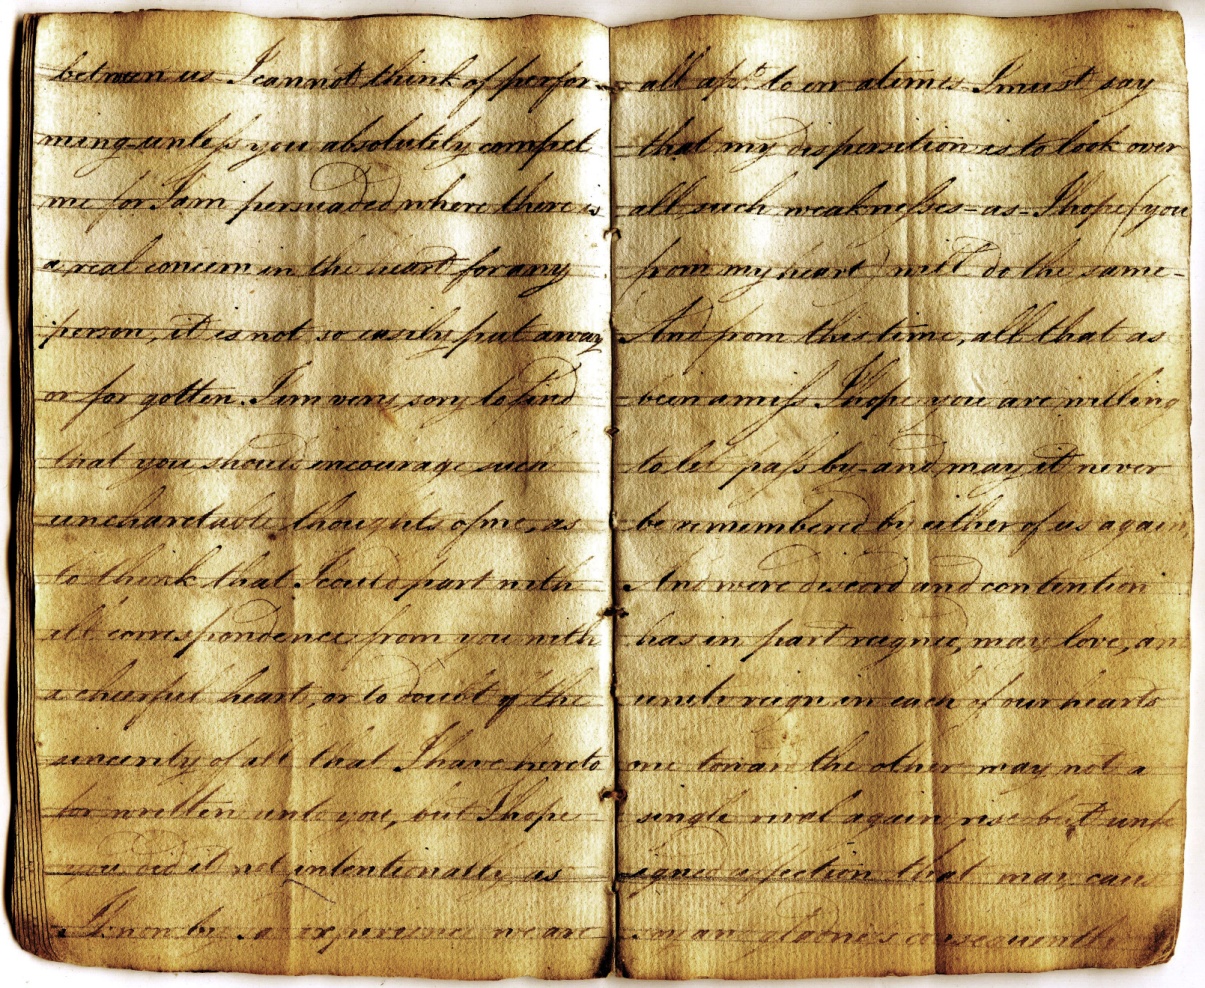 between us I cannot think of perfor
ming unless you absolutely compel
me for I am persuaded where there is
a real concern in the heart for any
person, it is not so easily put away
or for gotten. I am very sory to find
that you should encourage such
uncharetable thoughts of me, as
to think that I could part with
all correspondence from you with
a cheerful heart, or to doubt of the
sincerity of all that I have hereto
for written unto you, but I hope
you did it not intentionally, as
I know by experience we are
all apt to err at times I must say
that my disposition is to look over
all such weaknesses = as = I hope (you
from my heart) will do the same -
And from this time, all that as
been amiss I hope you are willing
to let pass by - and may it never
be remembered by either of us again,
And were discord and contention
has in part reigned, may love, and
unity reign in each of our hearts
one towar the other may not a
single rival again rise but
affection that may cause
joy and consequently